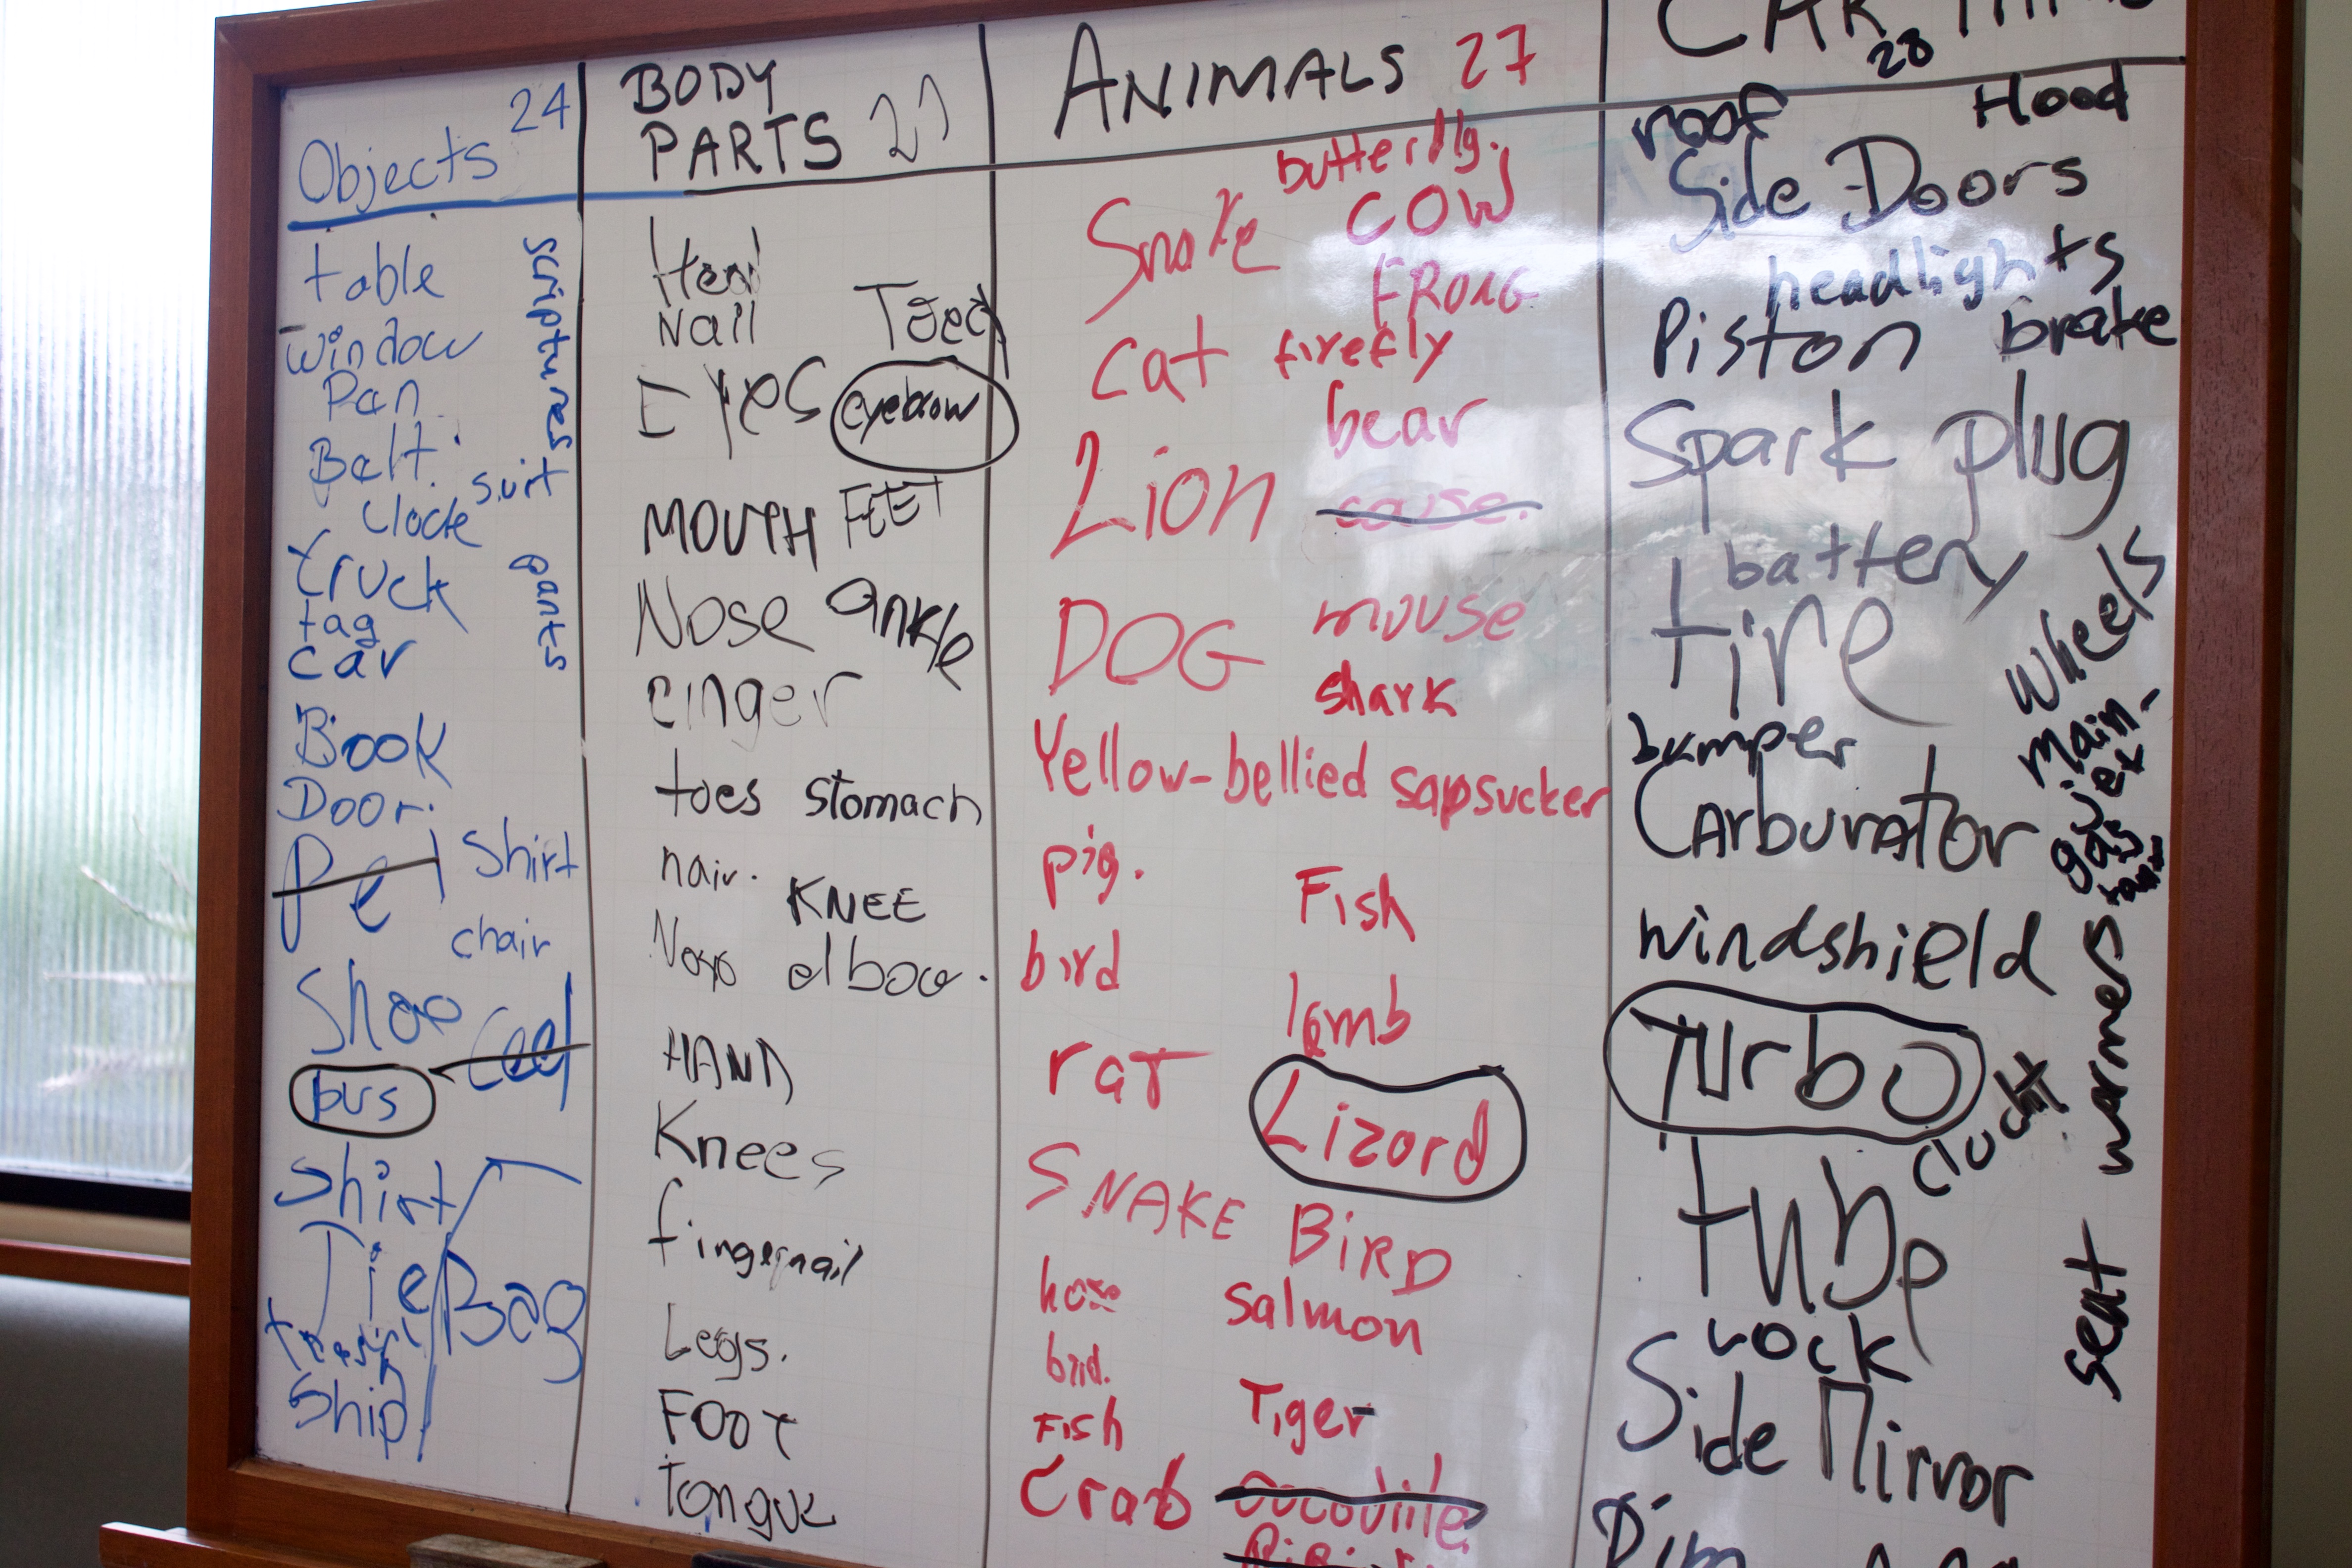 Objects 24
table
window
Pan
Belt.
suit
Clock
truck
tag
car
scriptures
pants
Book
Door.
Shirt
chair
Shoe
bus
Shirt
Tie
Bag
Ship
BODY
PARTS
Head
Nail
Eyes eyebrow
MOUTH FEET
Nose ankle
finger
toes stomach
hair.
KNEE
elbow.
HAND
Knees
fingernail
Legs.
FOOT
tongue
ANIMALS 27
butterfly.
Snake COW
FROG
cat firefly
bear
Lion
DOG mouse
shark
Yellow-bellied sapsucker
pig.
Fish
bird
lamb
rat
Lizard
SNAKE BIRD
salmon
bird.
Fish Tiger
Crab
CAR
28
roof Hood
Side Doors
headlights
Piston brake
Spark plug
battery
tire
wheels
bumper
Carburator
windshield
Turbo
seat warmers
tube
rock
Side Mirror